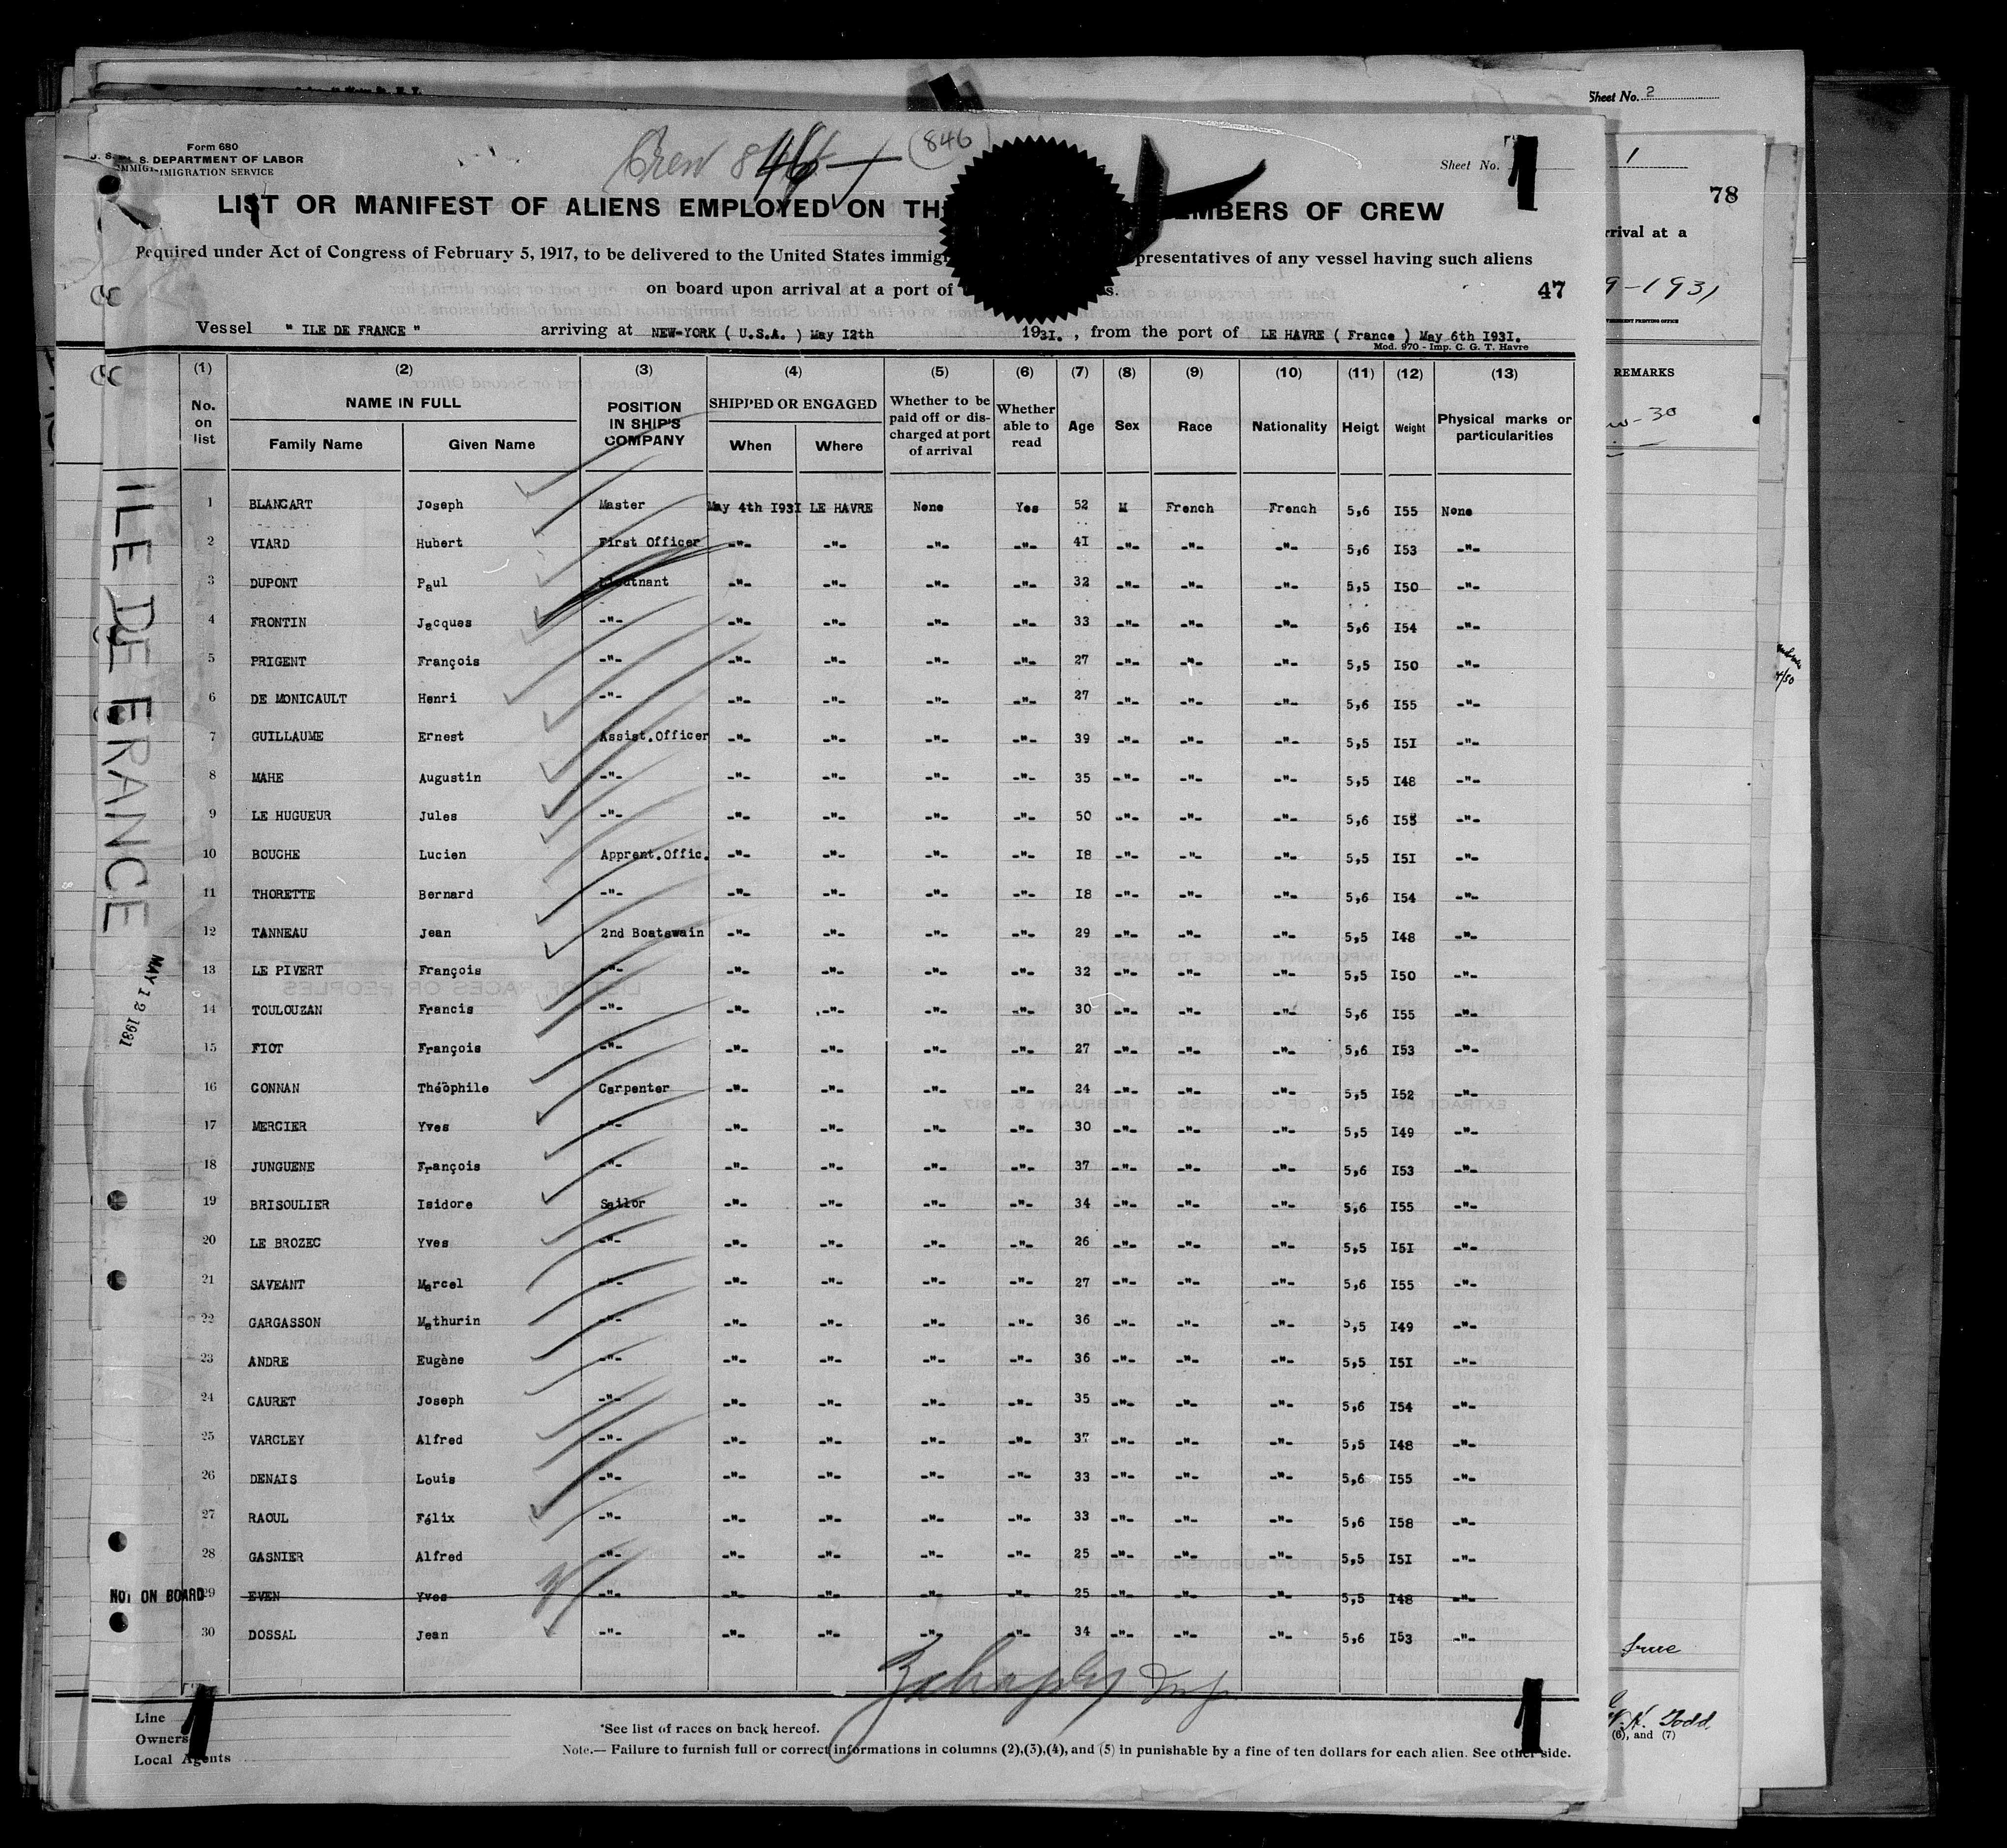 Sheet No. 2
Form 680
U. S. DEPARTMENT OF LABOR
IMMIGRATION SERVICE
Crew 846
846
Sheet No. 1
1
78
LIST OR MANIFEST OF ALIENS EMPLOYED ON TH MEMBERS OF CREW
Required under Act of Congress of February 5, 1917, to be delivered to the United States immig presentatives of any vessel having such aliens
on board upon arrival at a port of
47
rrival at a
9-1931
Vessel " ILE DE FRANCE " arriving at NEW-YORK ( U.S.A. ) May I2th 1931. , from the port of LE HAVRE ( France ) May 6th I93I.
Mod. 970 - Imp. C. G. T. Havre
(1) (2) (3) (4) (5) (6) (7) (8) (9) (10) (11) (12) (13)
No. on list NAME IN FULL Family Name Given Name POSITION IN SHIP'S COMPANY SHIPPED OR ENGAGED When Where Whether to be paid off or discharged at port of arrival Whether able to read Age Sex Race Nationality Heigt Weight Physical marks or particularities
REMARKS
1 BLANCART Joseph Master May 4th I93I LE HAVRE None Yes 52 M French French 5,6 I55 None
2 VIARD Hubert First Officer -"- -"- -"- -"- 4I -"- -"- -"- 5,6 I53 -"-
3 DUPONT Paul Lieutnant -"- -"- -"- -"- 32 -"- -"- -"- 5,5 I50 -"-
4 FRONTIN Jacques -"- -"- -"- -"- -"- 33 -"- -"- -"- 5,6 I54 -"-
5 PRIGENT François -"- -"- -"- -"- -"- 27 -"- -"- -"- 5,5 I50 -"-
6 DE MONICAULT Henri -"- -"- -"- -"- -"- 27 -"- -"- -"- 5,6 I55 -"-
7 GUILLAUME Ernest Assist.Officer -"- -"- -"- -"- 39 -"- -"- -"- 5,5 I5I -"-
8 MAHE Augustin -"- -"- -"- -"- -"- 35 -"- -"- -"- 5,5 I48 -"-
9 LE HUGUEUR Jules -"- -"- -"- -"- -"- 50 -"- -"- -"- 5,6 I55 -"-
10 BOUCHE Lucien Apprent.Offic. -"- -"- -"- -"- I8 -"- -"- -"- 5,5 I5I -"-
11 THORETTE Bernard -"- -"- -"- -"- -"- I8 -"- -"- -"- 5,6 I54 -"-
12 TANNEAU Jean 2nd Boatswain -"- -"- -"- -"- 29 -"- -"- -"- 5,5 I48 -"-
13 LE PIVERT François -"- -"- -"- -"- -"- 32 -"- -"- -"- 5,5 I50 -"-
14 TOULOUZAN Francis -"- -"- -"- -"- -"- 30 -"- -"- -"- 5,6 I55 -"-
15 FIOT François -"- -"- -"- -"- -"- 27 -"- -"- -"- 5,6 I53 -"-
16 CONNAN Théophile Carpenter -"- -"- -"- -"- 24 -"- -"- -"- 5,5 I52 -"-
17 MERCIER Yves -"- -"- -"- -"- -"- 30 -"- -"- -"- 5,5 I49 -"-
18 JUNGUENE François -"- -"- -"- -"- -"- 37 -"- -"- -"- 5,6 I53 -"-
19 BRISOULIER Isidore Sailor -"- -"- -"- -"- 34 -"- -"- -"- 5,6 I55 -"-
20 LE BROZEC Yves -"- -"- -"- -"- -"- 26 -"- -"- -"- 5,5 I5I -"-
21 SAVEANT Marcel -"- -"- -"- -"- -"- 27 -"- -"- -"- 5,6 I55 -"-
22 GARGASSON Mathurin -"- -"- -"- -"- -"- 36 -"- -"- -"- 5,5 I49 -"-
23 ANDRE Eugène -"- -"- -"- -"- -"- 36 -"- -"- -"- 5,5 I5I -"-
24 CAURET Joseph -"- -"- -"- -"- -"- 35 -"- -"- -"- 5,6 I54 -"-
25 VARCLEY Alfred -"- -"- -"- -"- -"- 37 -"- -"- -"- 5,5 I48 -"-
26 DENAIS Louis -"- -"- -"- -"- -"- 33 -"- -"- -"- 5,6 I55 -"-
27 RAOUL Félix -"- -"- -"- -"- -"- 33 -"- -"- -"- 5,6 I58 -"-
28 GASNIER Alfred -"- -"- -"- -"- -"- 25 -"- -"- -"- 5,5 I5I -"-
NOT ON BOARD 29 EVEN Yves -"- -"- -"- -"- -"- 25 -"- -"- -"- 5,5 I48 -"-
30 DOSSAL Jean -"- -"- -"- -"- -"- 34 -"- -"- -"- 5,6 I53 -"-
ILE DE FRANCE
MAY 12 1931
Line
Owners
Local Agents
*See list of races on back hereof.
Note.— Failure to furnish full or correct informations in columns (2),(3),(4), and (5) in punishable by a fine of ten dollars for each alien. See other side.
true
Todd
(6), and (7)